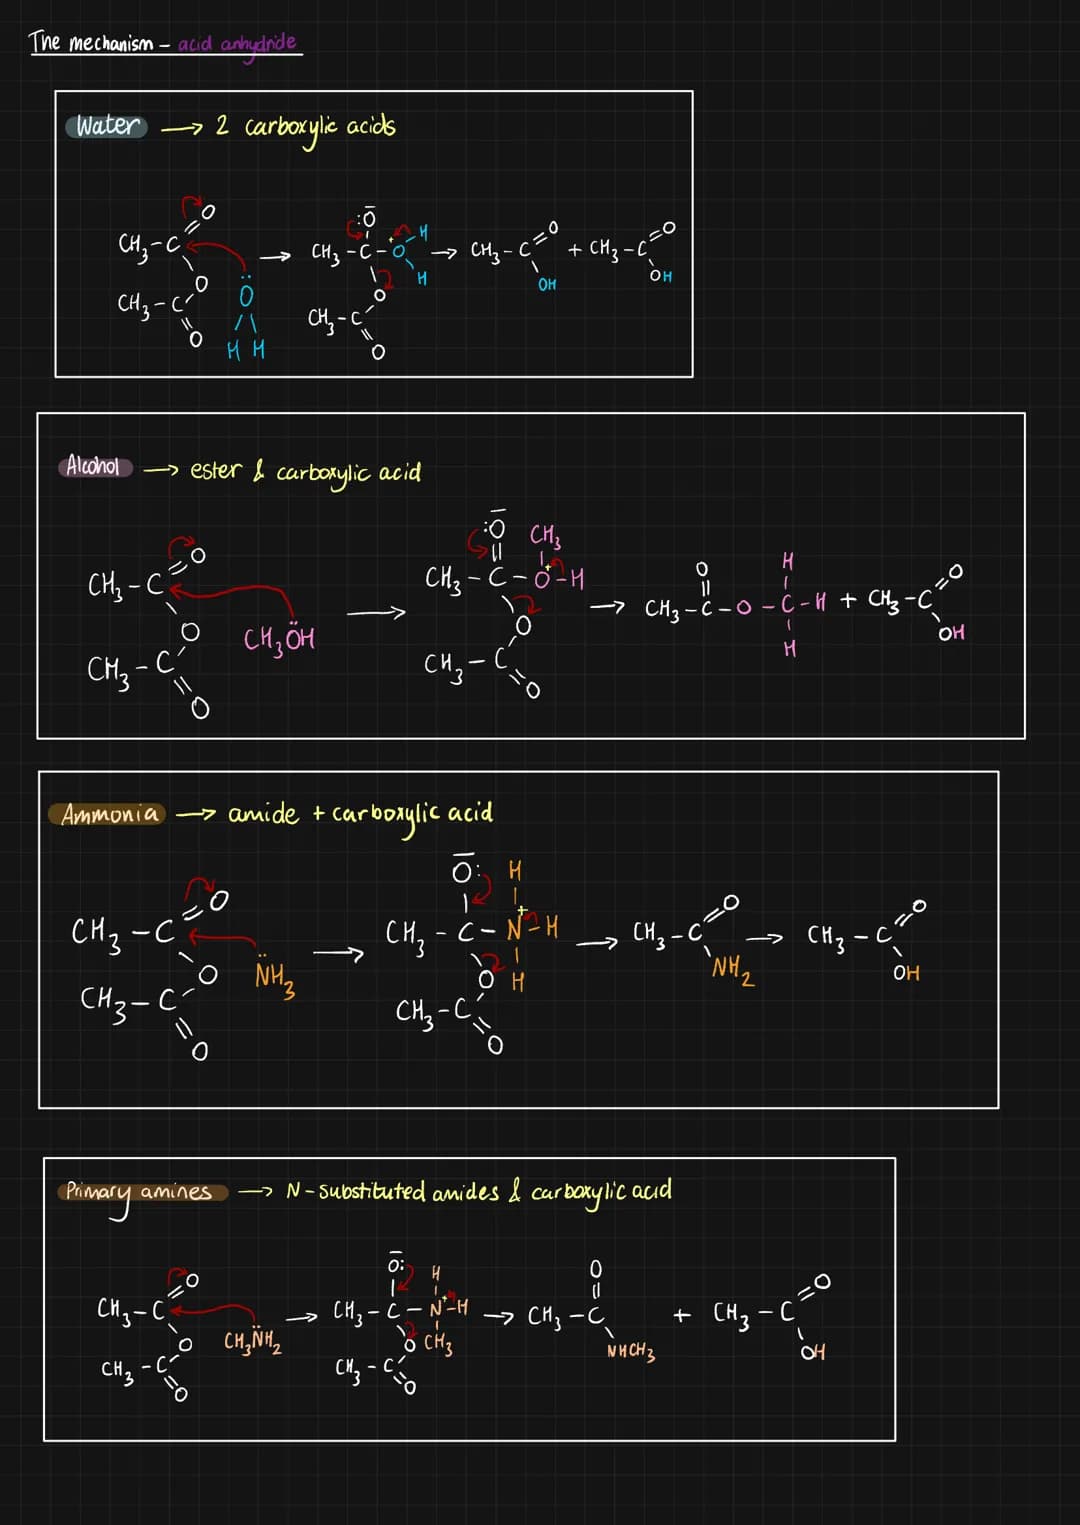 The mechanism – acid anhydride
Water → 2 carboxylic acids
CH3-C=O O CH3-C=O :Ö H H → CH3-C-O+ :O¯ H H O CH3-C=O → CH3-C=O OH + CH3-C=O OH
Alcohol → ester & carboxylic acid
CH3-C=O O CH3-C=O CH3ÖH → CH3-C-O+-H :O¯ CH3 O CH3-C=O → CH3-C-O-C-H O H H + CH3-C=O OH
Ammonia → amide + carboxylic acid
CH3-C=O O CH3-C=O N̈H3 → CH3-C-N+-H O:¯ H H O CH3-C=O → CH3-C=O NH2 → CH3-C=O OH
Primary amines → N-substituted amides & carboxylic acid
CH3-C=O O CH3-C=O CH3N̈H2 → CH3-C-N+-H O:¯ H CH3 O CH3-C=O → CH3-C=O NHCH3 + CH3-C=O OH